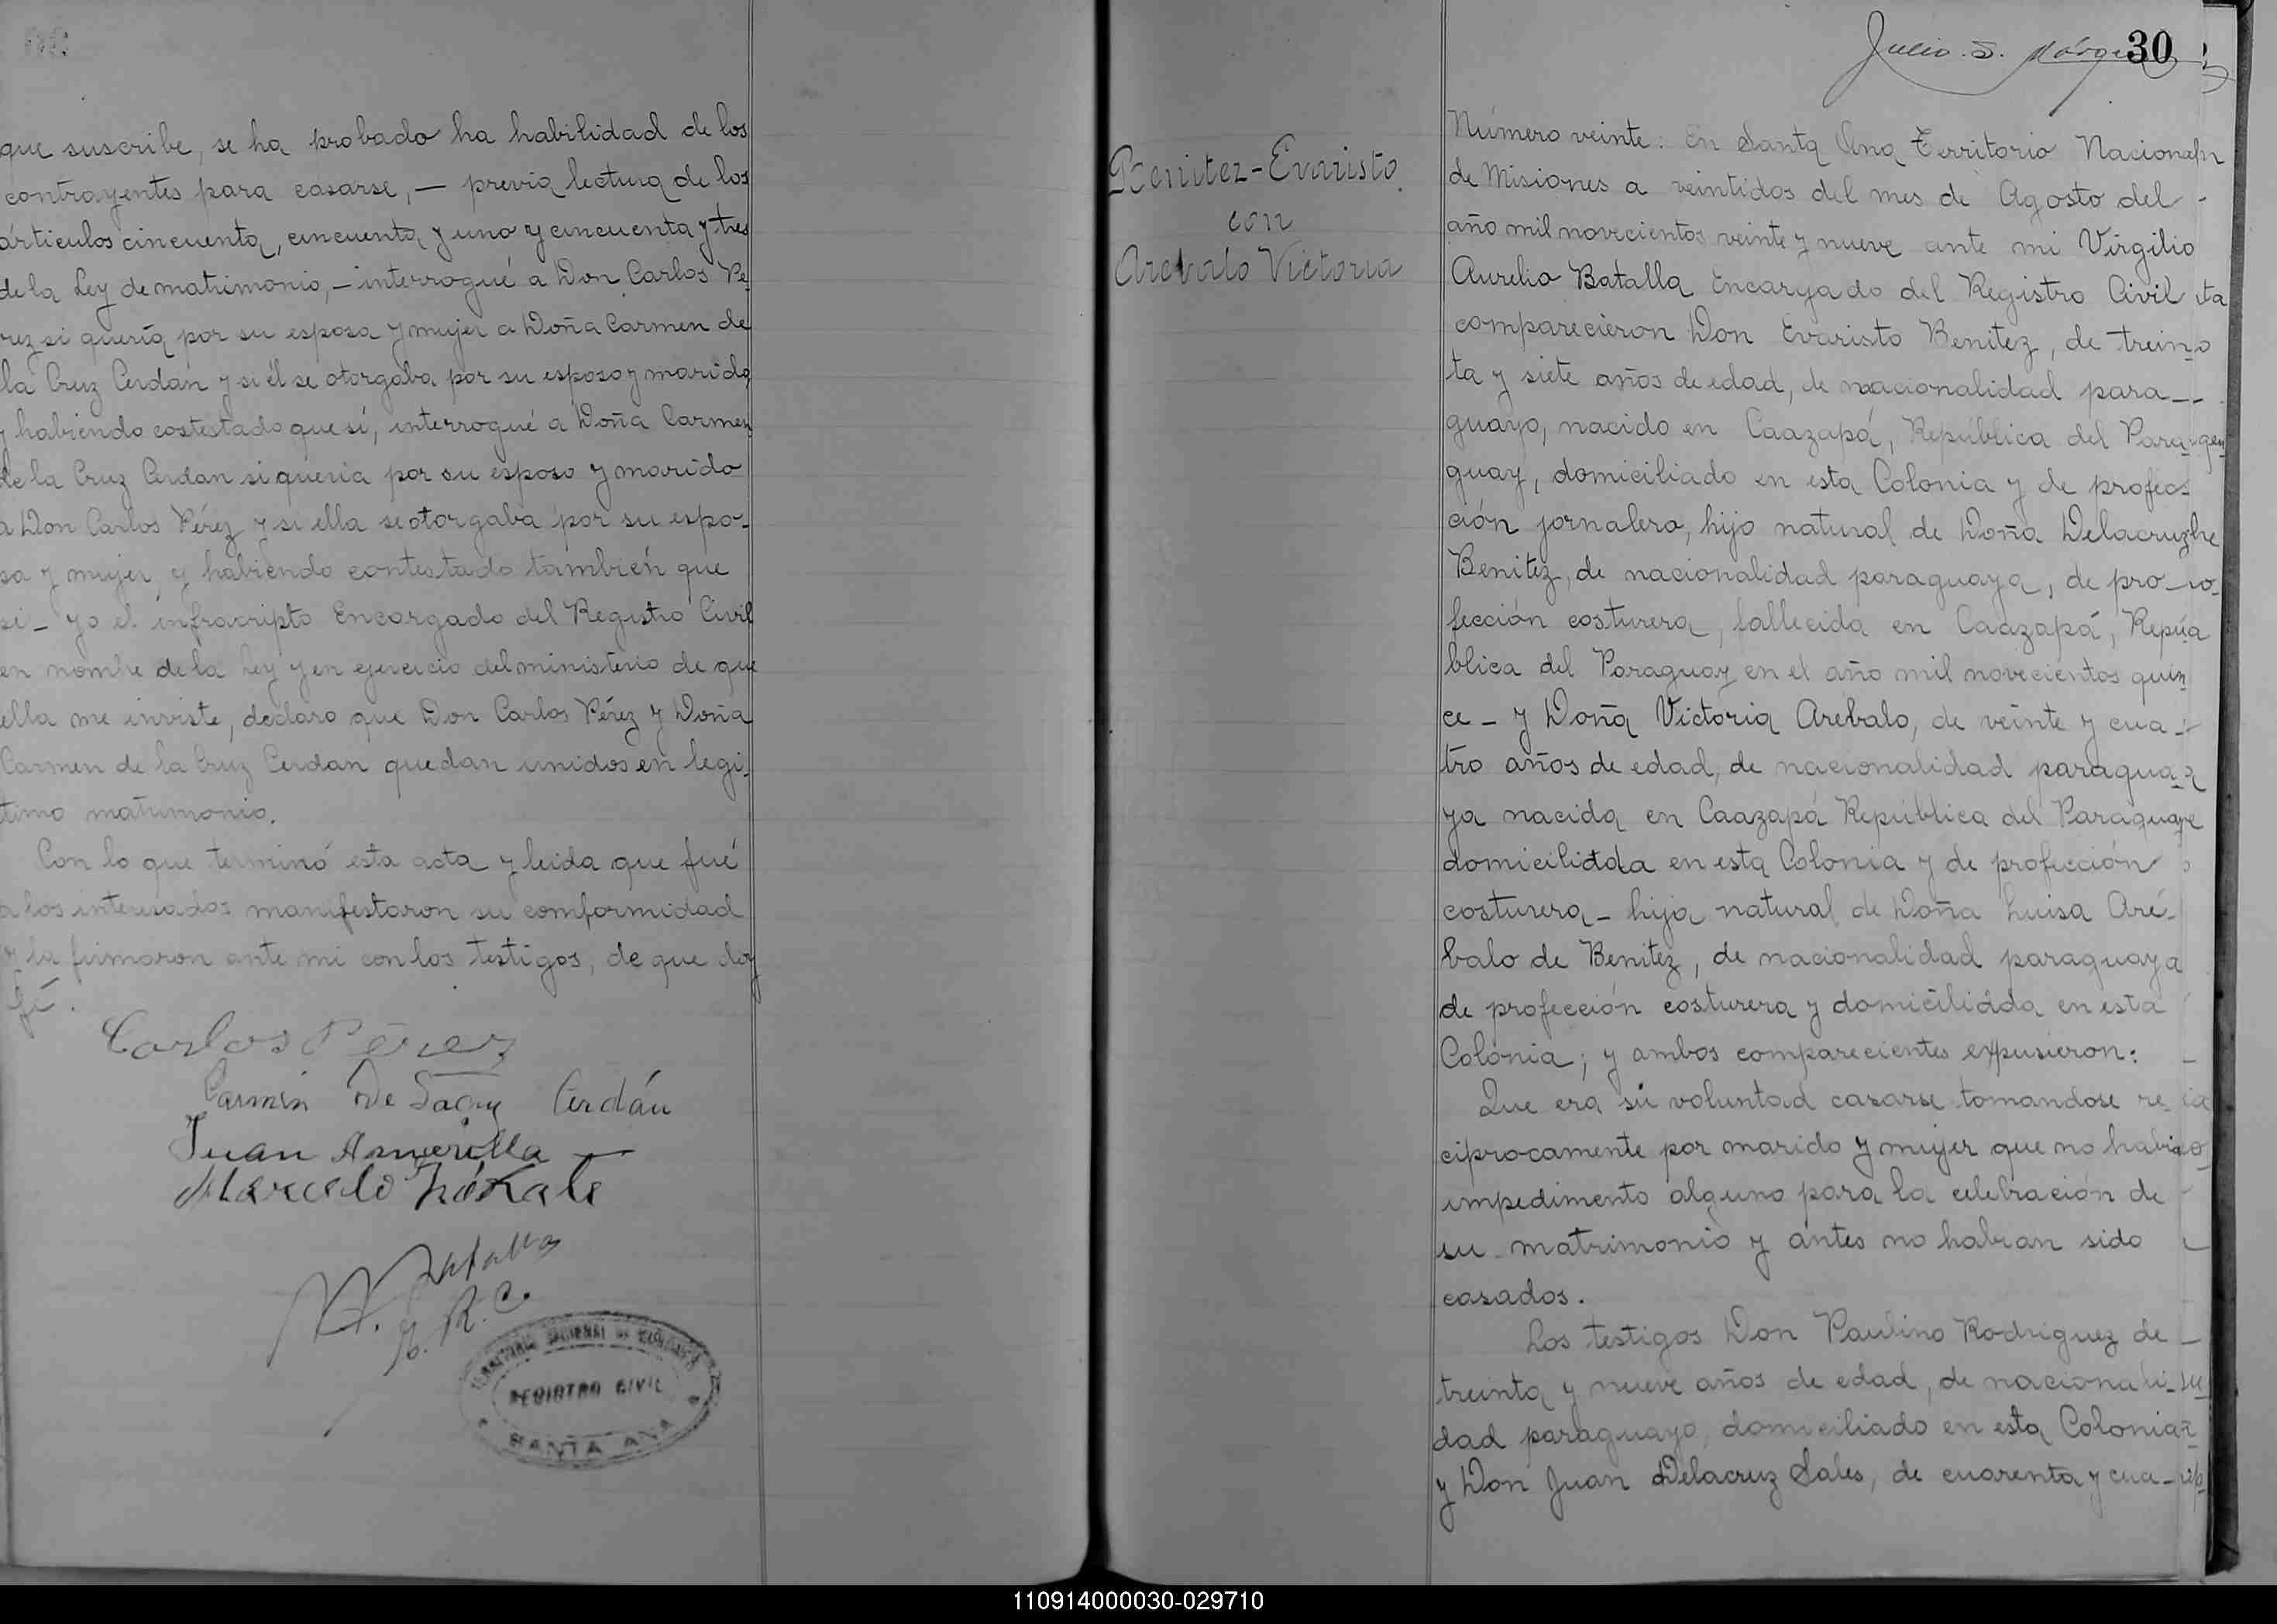 que suscribe, se ha probado ha habilidad de los
contrayentes para casarse, — previa lectura de los
artículos cincuenta, cincuenta y uno y cincuenta y tres
de la Ley de matrimonio, — interrogué a Don Carlos Pé-
rez si quería por su esposa y mujer a Doña Carmen de
la Cruz Cerdan y si él se otorgaba por su esposo y marido
y habiendo costestado que sí, interrogué a Doña Carmen
de la Cruz Cerdan si queria por su esposo y marido
a Don Carlos Pérez y si ella se otorgaba por su espo-
sa y mujer, y habiendo contestado también que
si — yo el infracripto Encargado del Registro Civil
en nombre de la Ley y en ejercicio del ministerio de que
ella me inviste, declaro que Don Carlos Pérez y Doña
Carmen de la Cruz Cerdan quedan unidos en legi-
timo matrimonio.
Con lo que terminó esta acta y leida que fué
a los interesados manifestaron su comformidad
y la firmaron ante mi con los testigos, de que doy
fé.
Carlos Pérez
Carmen De Cerdán
Juan Amerilla
Marcelo
V. A. Batalla
E. R. C.
TERRITORIO NACIONAL DE MISIONES
REGISTRO CIVIL
SANTA ANA
Benitez-Evaristo
con
Arebalo Victoria
Julio S.
30
Número veinte: En Santa Ana Territorio Nacional
de Misiones a veintidos del mes de Agosto del
año mil novecientos veinte y nueve ante mi Virgilio
Aurelio Batalla Encargado del Registro Civil
comparecieron Don Evaristo Benitez, de trein-
ta y siete años de edad, de nacionalidad para-
guayo, nacido en Caazapá, República del Para-
guay, domiciliado en esta Colonia y de profec-
ción jornalero, hijo natural de Doña Delacruz
Benitez, de nacionalidad paraguaya, de pro-
fección costurera, fallecida en Caazapá, Repú-
blica del Paraguay en el año mil novecientos quin-
ce — y Doña Victoria Arébalo, de veinte y cua-
tro años de edad, de nacionalidad paragua-
ya nacida en Caazapá República del Paraguay
domiciliada en esta Colonia y de profección
costurera — hija natural de Doña Luisa Aré-
balo de Benitez, de nacionalidad paraguaya
de profección costurera y domiciliada en esta
Colonia; y ambos comparecientes expusieron:
Que era su voluntad casarse tomandose re-
ciprocamente por marido y mujer que no habia
impedimento alguno para la celebración de
su matrimonio y antes no habian sido
casados.
Los testigos Don Paulino Rodriguez de
treinta y nueve años de edad, de nacionali-
dad paraguayo, domiciliado en esta Colonia
y Don Juan Delacruz Sales, de cuarenta y cua-
110914000030-029710